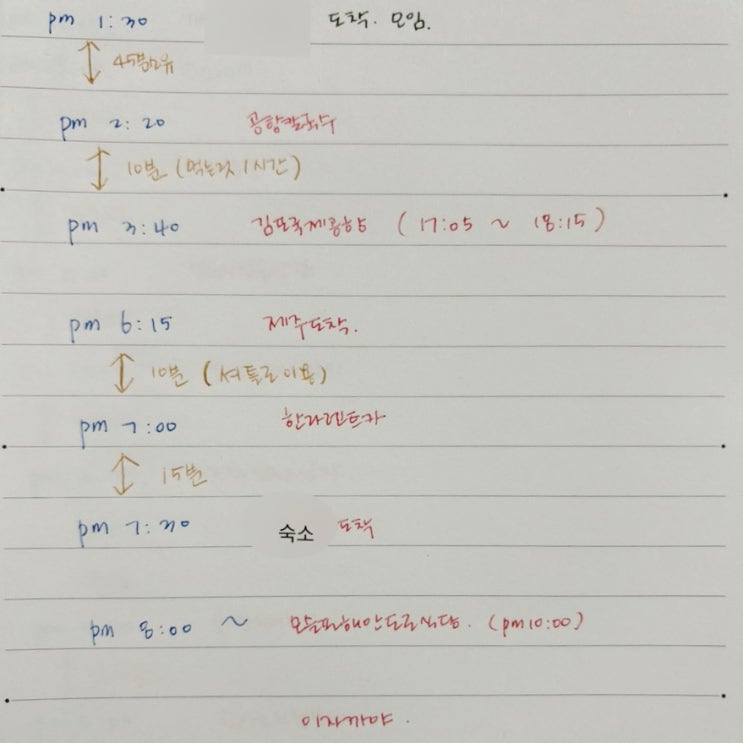 pm 1:30 도착. 모임.
45분소유
pm 2:20 공항칼국수
10분 (먹는것 1시간)
pm 3:40 김포국제공항 (17:05 ~ 18:15)
pm 6:15 제주도착.
10분 (셔틀로이용)
pm 7:00 한라렌트카
15분
pm 7:30 숙소 도착
pm 8:00 ~ 모슬포해안도로식당. (pm10:00)
이자까야.